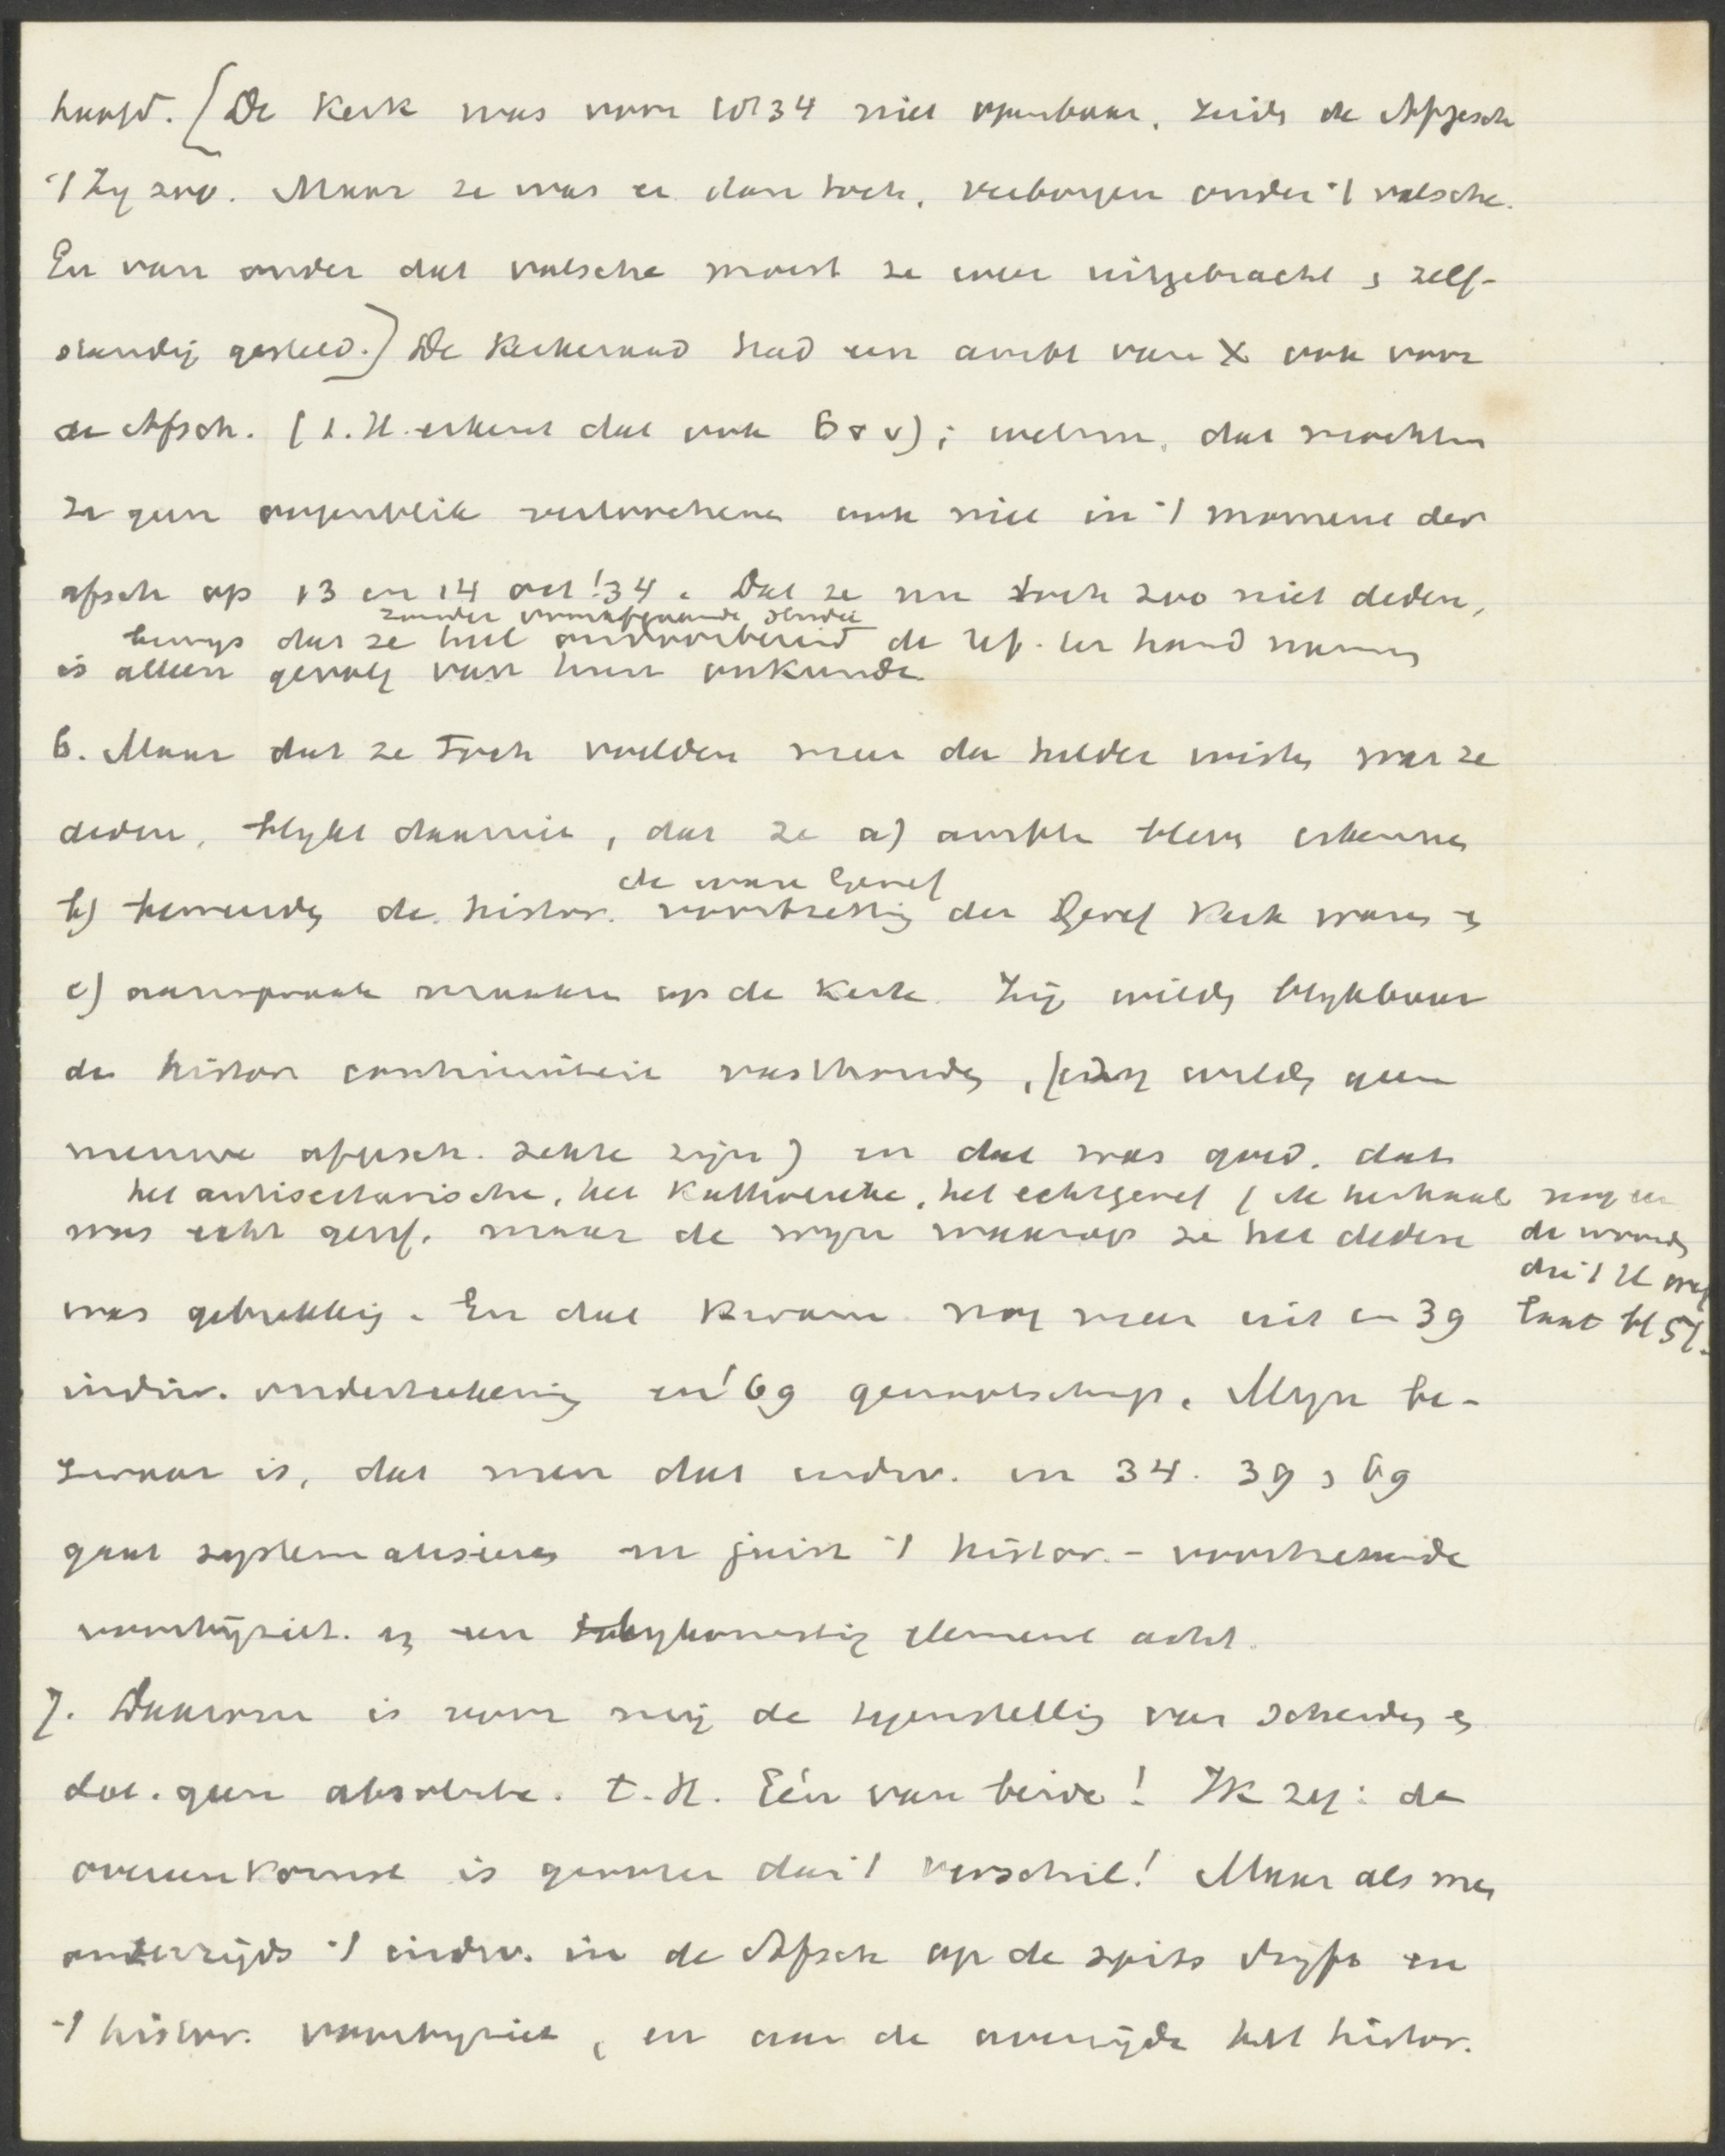 hoofd. [De Kerk was voor 1834 niet openbaar, zeids de Afgesch
't Zij zoo. Maar ze was er dan toch, verborgen onder 't valsche.
En van onder dat valsche moest ze weer uitgebracht & zelf-
standig gesteld.] De Kerkeraad had een ambt van X ook voor
de Afsch. (t. H. erkent dat ook 6 v v); welnu, dat mochten
ze geen oogenblik verloochenen ook niet in 't moment der
afsch op 13 en 14 oct '34. Dat ze nu toch zoo niet deden,
zonder voorafgaande studie
bewijs dat ze heel onvoorbereid de ref. ter hand namen
is alleen gevolg van hun onkunde.
6. Maar dat ze toch voelden meer dan helder wisten wat ze
deden, blijkt daaruit, dat ze a) ambten bleven erkennen
de ware Geref
b) beweerden de histor. voortzetting der Geref Kerk waren en
c) aanspraak maakten op de Kerk. Zij wilden blijkbaar
de histor continuiteit vasthouden, (zij wilden geen
nieuwe afgesch. sekte zijn) en dat was goed. dat
het antisectarische, het Katholieke, het echtgeref (ik herhaal nog eens
was echt geref. maar de wijze waarop ze het deden de woorden
die 't H
was gebrekkig. En dat kwam nog meer uit in 39 laat bl 57.
indiv. onderteekening en '69 genootschap. Mijn be-
zwaar is, dat men dat indiv. in 34. 39 & 69
gaat systematiseren en juist 't histor. - voortzettende
voorbijziet. en een bijkomstig element acht.
7. Daarom is voor mij de tegenstelling van scheiden en
dol. geen absolute. t. H. Eén van beide! Ik zeg: de
overeenkomst is grooter dan 't verschil! Maar als men
anderzijds 't indiv. in de Afsch op de spits drijft en
't histor. voorbijziet, en aan de overzijde het histor.